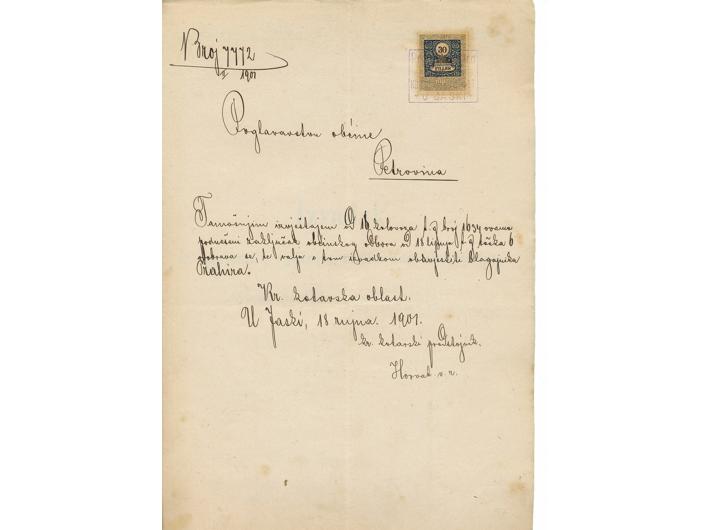 Broj 7772
1901
30
FILLER
Poglavarstvu obćine
Petrovina
Tamošnjim izvještajem od 16 kolovoza t. g. broj 1634 ovamo
podneseni zaključak obćinskog odbora od 18 lipnja t. g. točka 6
odobrava se, te valja o tom izvadkom obavjestiti blagajnika
Kr. kotarska oblast.
U Jaski, 18 rujna. 1901.
kr. kotarski predstojnik.
Horvat v. r.